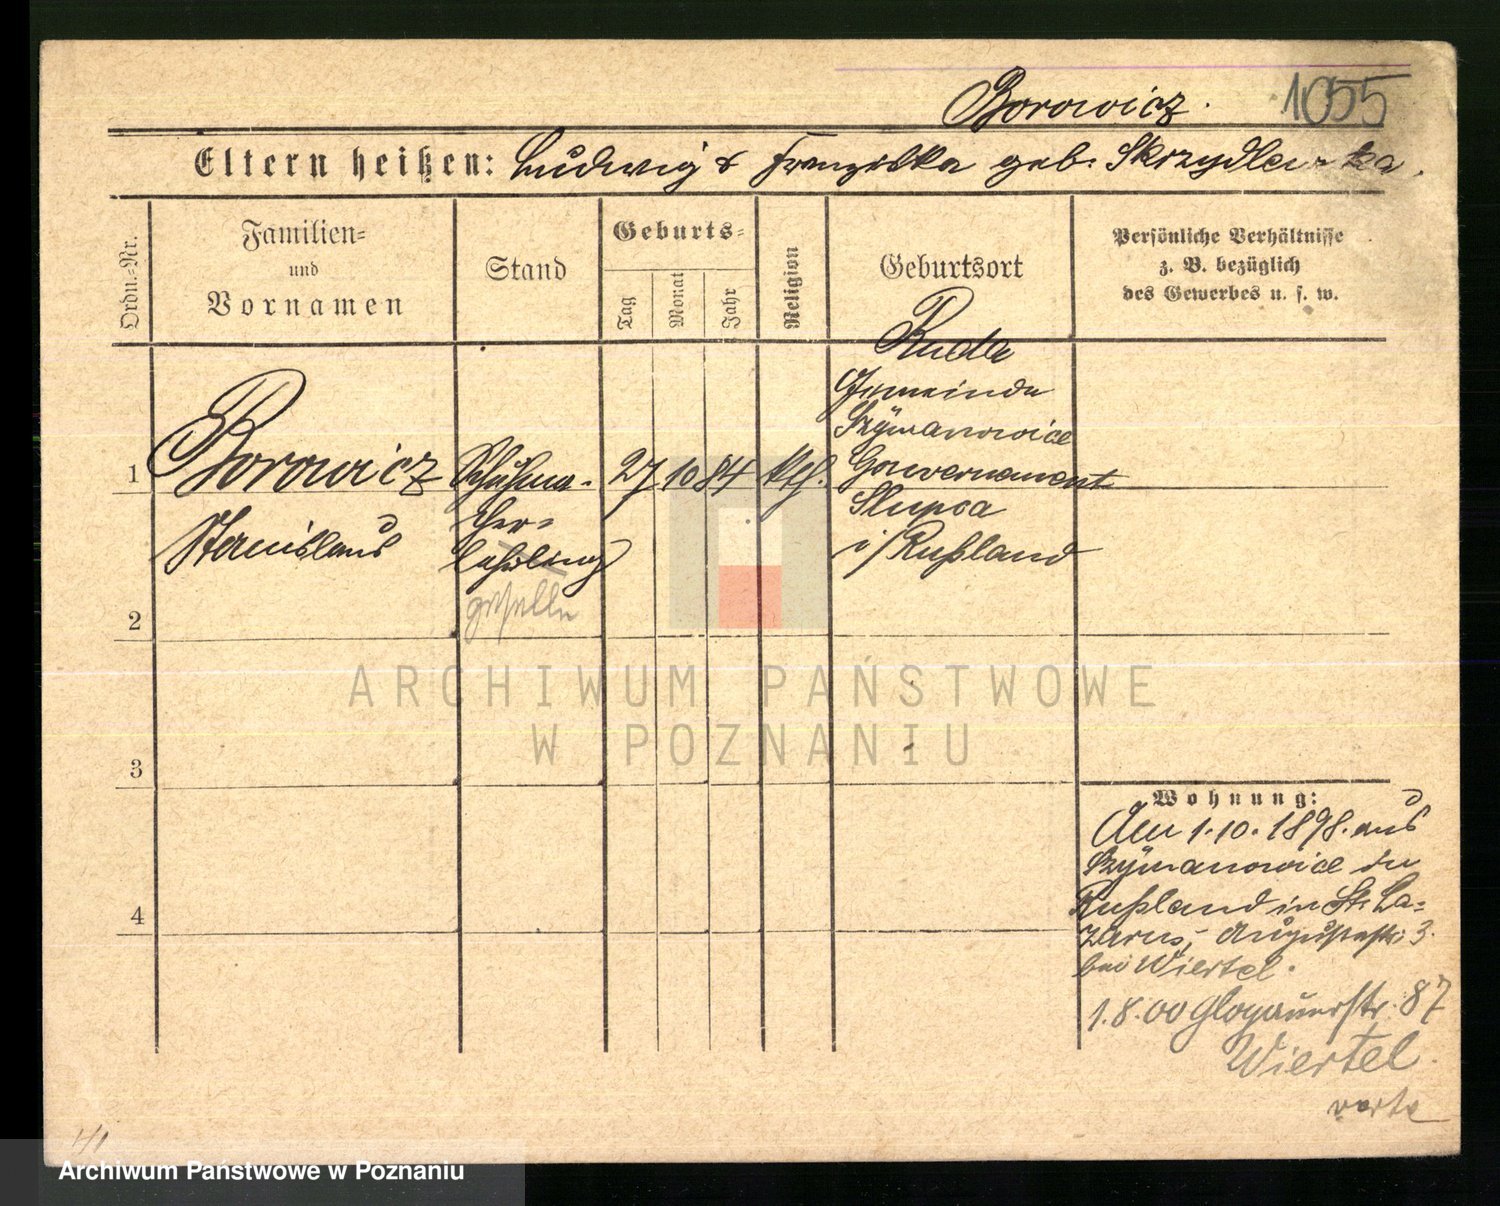 Borowicz. 1055
Eltern heißen: Ludwig & Franziska geb. Skrzydlewska.
Ordn.-Nr.
Familien-
und
Vornamen
Stand
Geburts-
Tag
Monat
Jahr
Religion
Geburtsort
Persönliche Verhältnisse
z. B. bezüglich
des Gewerbes u. s. w.
1
Borowicz
Stanislaus
Schuhma-
cher-
lehrling
geselle
27 10 84 kth.
Ruda
Gemeinde
Szÿmanowice
Gouvernement
Slupca
i/Rußland
2
3
4
Wohnung:
Am 1.10.1898. aus
Szÿmanowice in
Rußland in St. La-
zarus, Augustastr. 3.
bei Wiertel.
1.8.00 Glogauerstr. 87
Wiertel.
verte
ARCHIWUM PAŃSTWOWE
W POZNANIU
Archiwum Państwowe w Poznaniu